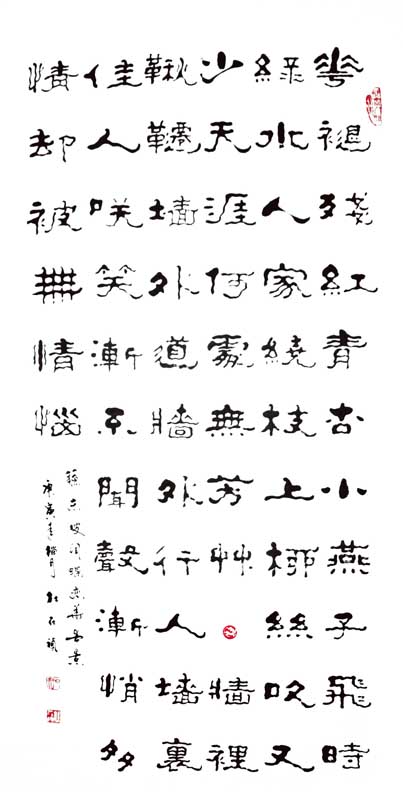 華褪殘紅青杏小燕子飛時
綠水人家繞枝上柳絲吹又
少天涯何處無芳艸牆裡
鞦韆墻外道牆外行人墻裏
佳人咲笑漸不聞聲漸悄多
情却被無情惱
蘇東坡詞蝶戀華春景
庚寅年臘月